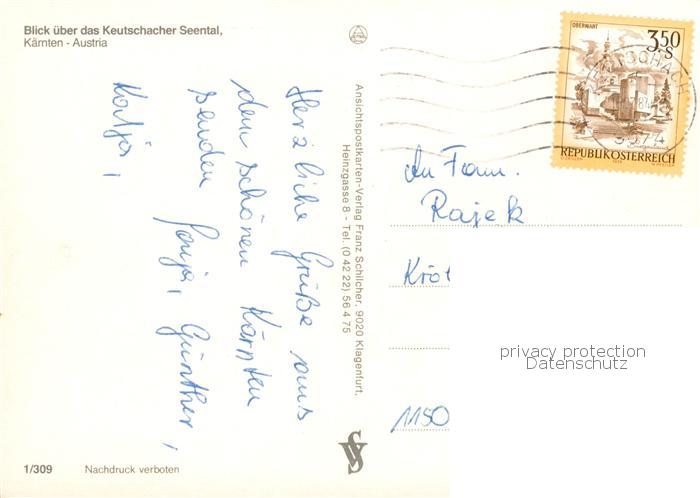 Blick über das Keutschacher Seental,
Kärnten - Austria
Herzliche Grüße aus
dem schönen Kärnten
senden Sonja, Günther,
Katja,
Ansichtspostkarten-Verlag Franz Schilcher, 9020 Klagenfurt,
Heinzgasse 8 - Tel. (0 42 22) 56 4 75
OBERWART
3.50
S
REPUBLIK ÖSTERREICH
An Fam.
Rajek
1150
privacy protection
Datenschutz
1/309
Nachdruck verboten